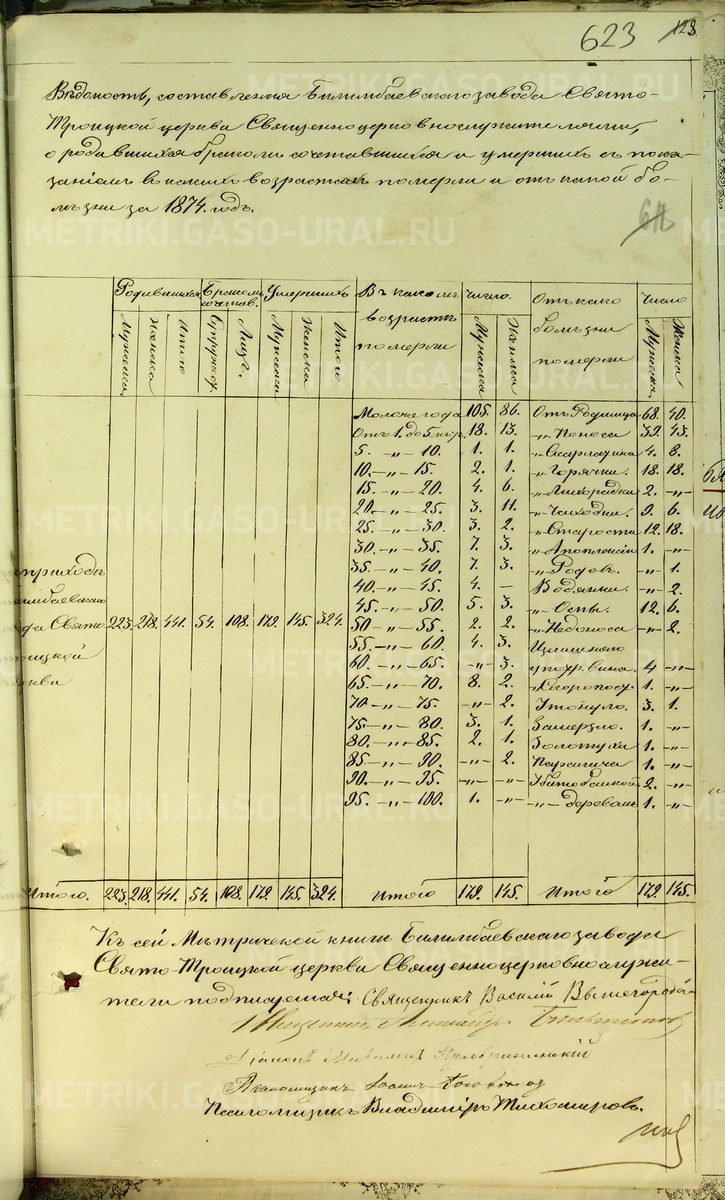 623
123
Вѣдомость, составленная Билимбаевскаго завода Свято-
Троицкой церкви Священноцерковнослужителями,
о родившихся бракомъ сочетавшихся и умершихъ съ пока-
заніемъ въ какихъ возрастахъ померли и отъ какой бо-
лѣзни за 1874. годъ.
Родившихся Бракомъ сочетав. Умершихъ Въ какомъ возрастѣ померли Число. Отъ какой болѣзни померли Число
Мужеска Женска Итого Супружес. Лицъ. Мужеска Женска Итого Мужеска Женска Мужеска Женска
Моложе года 105. 86. Отъ Родимца 68. 40.
Отъ 1. до 5 лѣт. 18. 13. „ Поноса 39. 43.
5. –„– 10. 1. 1. „ Скарлатина 4. 8.
10. –„– 15. 2. 1. „ Горячки. 18. 18.
15. –„– 20. 4. 6. „ Лихорадки 2. –„–
20. –„– 25. 3. 11. „ Чахотки. 9. 6.
25. –„– 30. 3. 2. „ Старости 12. 18.
30. –„– 35. 7. 3. „ Апоплексіи 1. –„–
35. –„– 40. 7. 3. „ Родовъ. –„– 1.
40. –„– 45. 4. – Водянки. –„– 2.
45. –„– 50. 5. 3. „ Оспы. 12. 6.
приходъ
Билимбаевскаго
завода Свято 223. 218. 441. 54. 108. 179. 145. 324. 50 –„– 55. 2. 2. „ Недоноса –„– 2.
Троицкой
церкви
55. –„– 60. 4. 3. Излишняго
60. –„– 65. –„– 3. упот. вина. 4 –„–
65. –„– 70. 8. 2. „ Скоропост. 1. –„–
70 –„– 75. –„– 2. Утонуло. 3. 1.
75. –„– 80. 3. 1. Замерзло. 1. –„–
80. –„– 85. 2. 1. Золотухи 1. –„–
85. –„– 90. –„– 2. Паралича 1. –„–
90. –„– 95. –„– –„– Убито башкой 2. –„–
95. –„– 100. 1. –„– –„– деревомъ 1. –„–
Итого. 223. 218. 441. 54. 108. 179. 145. 324. Итого 179. 145. Итого 179. 145.
Къ сей Метрической книгѣ Билимбаевскаго завода
Свято-Троицкой церкви Священноцерковнослужи-
тели подписуемся: Священникъ Василій
Священникъ Александръ
Діаконъ
Псаломщикъ Іоаннъ
Псаломщикъ Владиміръ Тихомировъ.
METRIKI.GASO-URAL.RU